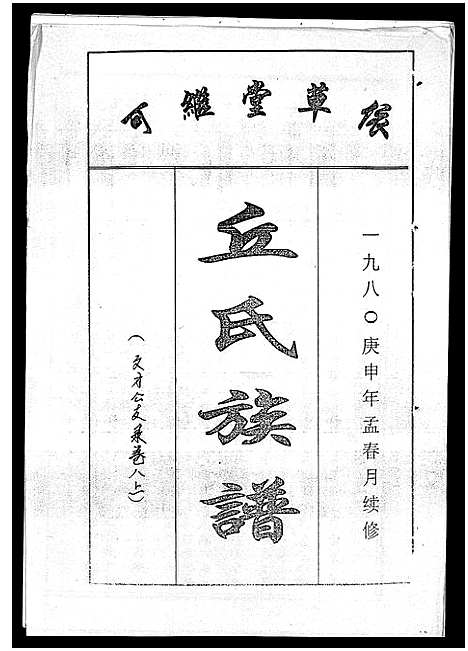 草堂維
一九八〇庚申年孟春月续修
丘氏族譜
(文才公支系卷八上)